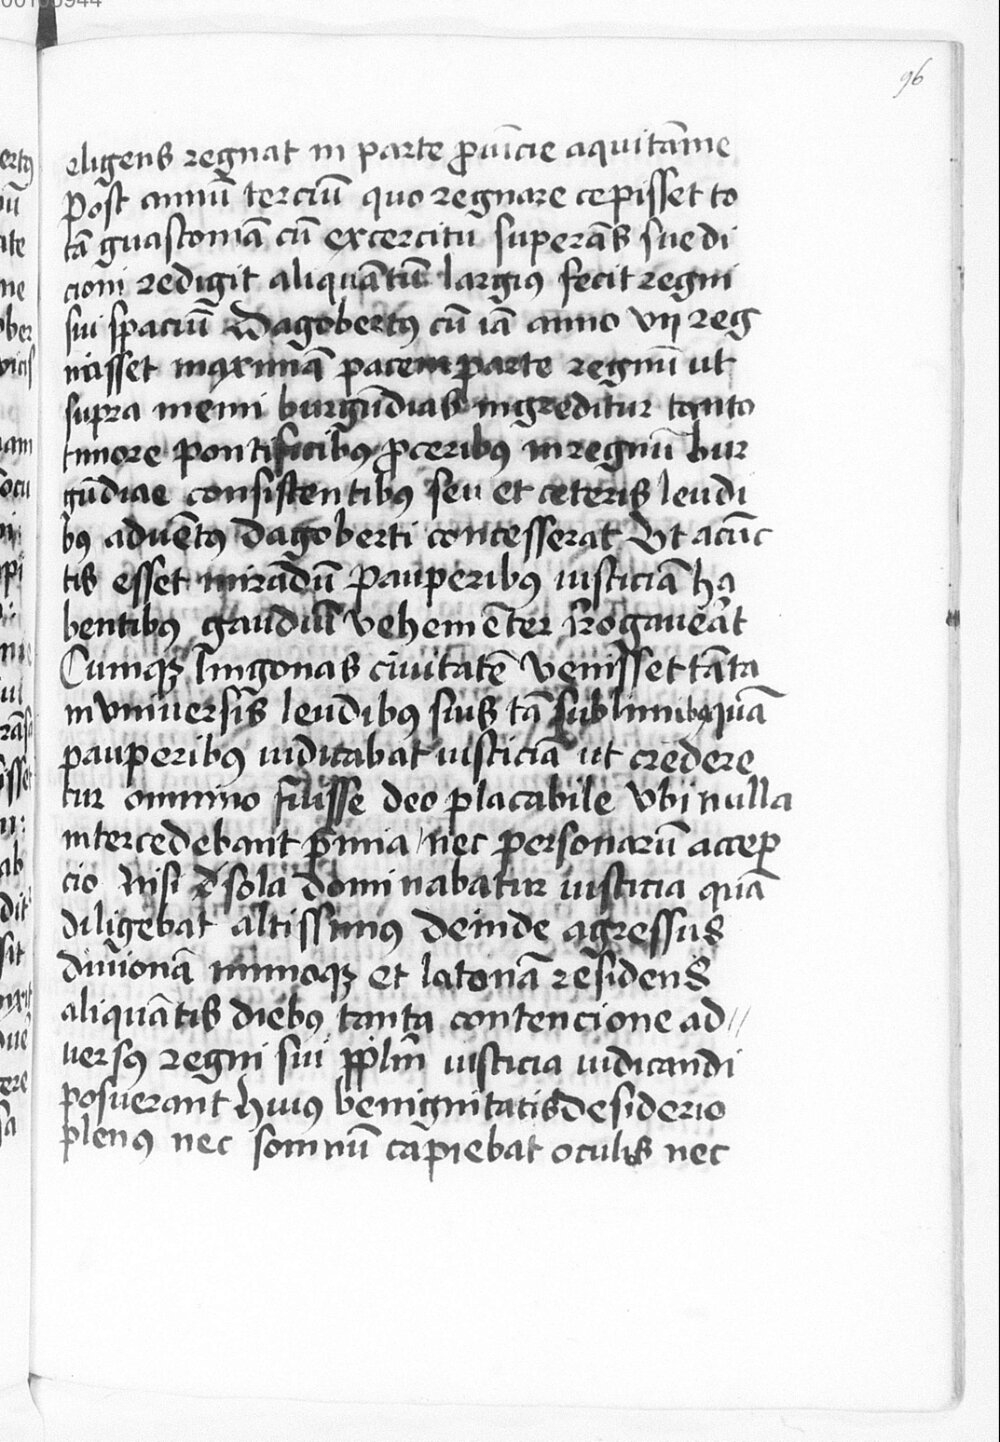 96
eligens regnat in parte ꝓuīcie aquitānie
Post annū terciū quo regnare cepisset to
tā guasconiā cū excercitu superās sue di
cioni redigit aliquātū largiꝰ fecit regni
sui spaciū Dagobertꝰ cū iā anno vij reg
nasset maximā pacem parte regnū ut
supra memi burgūdias ingreditur tanto
timore pontificibꝰ ꝓceribꝰ in regnū bur
gūdiae consistentibꝰ seu et ceteris leudi
bꝰ aduētꝰ dagoberti concesserat Ut acūc
tis esset mirādū Pauperibꝰ iusticiā ha
bentibꝰ gaudiū vehemēter Rogaueāt
Cumqꝫ lingonas ciuitatē venisset tāta
in vniuersis leudibꝰ suis tā sublimibꝰ quā
pauperibꝰ iudicabat iusticiā ut credere
tur omnino fuisse deo placabile vbi nulla
intercedebant p̄mia nec personarū accep
cio Nisi sola dominabatur iusticia quā
diligebat altissimꝰ deinde agressus
diuionā nimoqꝫ et latonā residens
aliquātis diebꝰ tanta contencione ad//
uersꝰ regni sui pplm̄ iusticia iudicandi
posuerant Huiꝰ benignitatis desiderio
plenꝰ nec somnū capiebat oculis nec